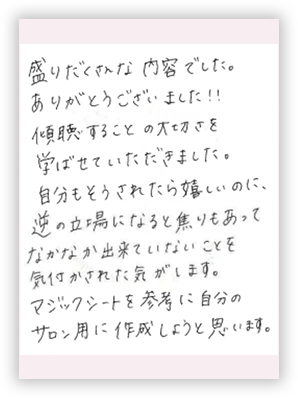 盛りだくさんな内容でした。
ありがとうございました!!
傾聴することの大切さを
学ばせていただきました。
自分もそうされたら嬉しいのに、
逆の立場になると焦りもあって
なかなか出来ていないことを
気付かされた気がします。
マジックシートを参考に自分の
サロン用に作成しようと思います。